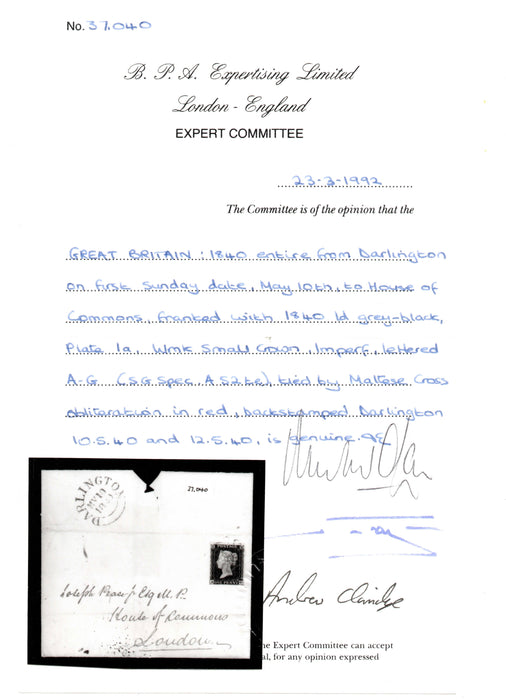 No. 37,040
B. P. A. Expertising Limited
London - England
EXPERT COMMITTEE
23-3-1992
The Committee is of the opinion that the
GREAT BRITAIN : 1840 entire from Darlington
on first Sunday date, May 10th, to House of
Commons, franked with 1840 1d grey-black,
Plate 1a, Wmk Small Crown, Imperf, lettered
A-G (SG Spec. AS2te), tied by Maltese Cross
obliteration in red, backstamped Darlington
10.5.40 and 12.5.40, is genuine.
DARLINGTON
37,040
POSTAGE
ONE PENNY
Joseph Pease Jr Esq M. P.
House of Commons
London
Andrew Claridge
he Expert Committee can accept
al, for any opinion expressed